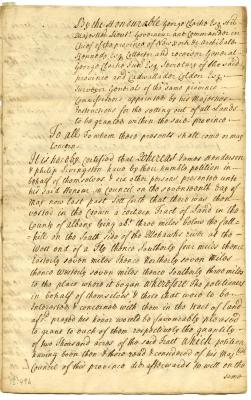 By the Honourable George Clarke Esq. his
Majesties Lieut. Governour and Commander in
Chief of the province of New York &c Archibald
Kennedy Esq. Collector and receiver General
George Clarke Junr. Esq. Secretary of the said
province and Cadwallader Colden Esq.
Surveyor General of the same province
Commissioners appointed by his Majesties
Instructions for the setting out of all Lands
to be granted within the said province
To all To whom these presents shall come or may
Concern
It is hereby Certified that Whereas James Henderson
& Philip Livingston have by their humble petition in
behalf of themselves & six other persons presented unto
his said Honour in Council on the seventeenth day of
may now last past Set forth that there was then
vested in the Crown a Certain Tract of Land in the
County of Albany lying abt. three miles below the fall
hill on the South Side of the Mohawks river at the
West end of a thence Southerly four miles thence
Easterly seven miles thence Northerly seven miles
thence Westerly seven miles thence Southerly three miles
to the place where it began Wherefore the petitioners
in behalf of themselves & those that were to be
Interested & concerned with them in the tract of Land
afsd. prayed his honor would be favourably pleased
to grant to each of them respectively the quantity
of two thousand acres of the said tract Which petition
having been then & there read & considered of his Majties
Council of this province did afterwards to wit on the
same